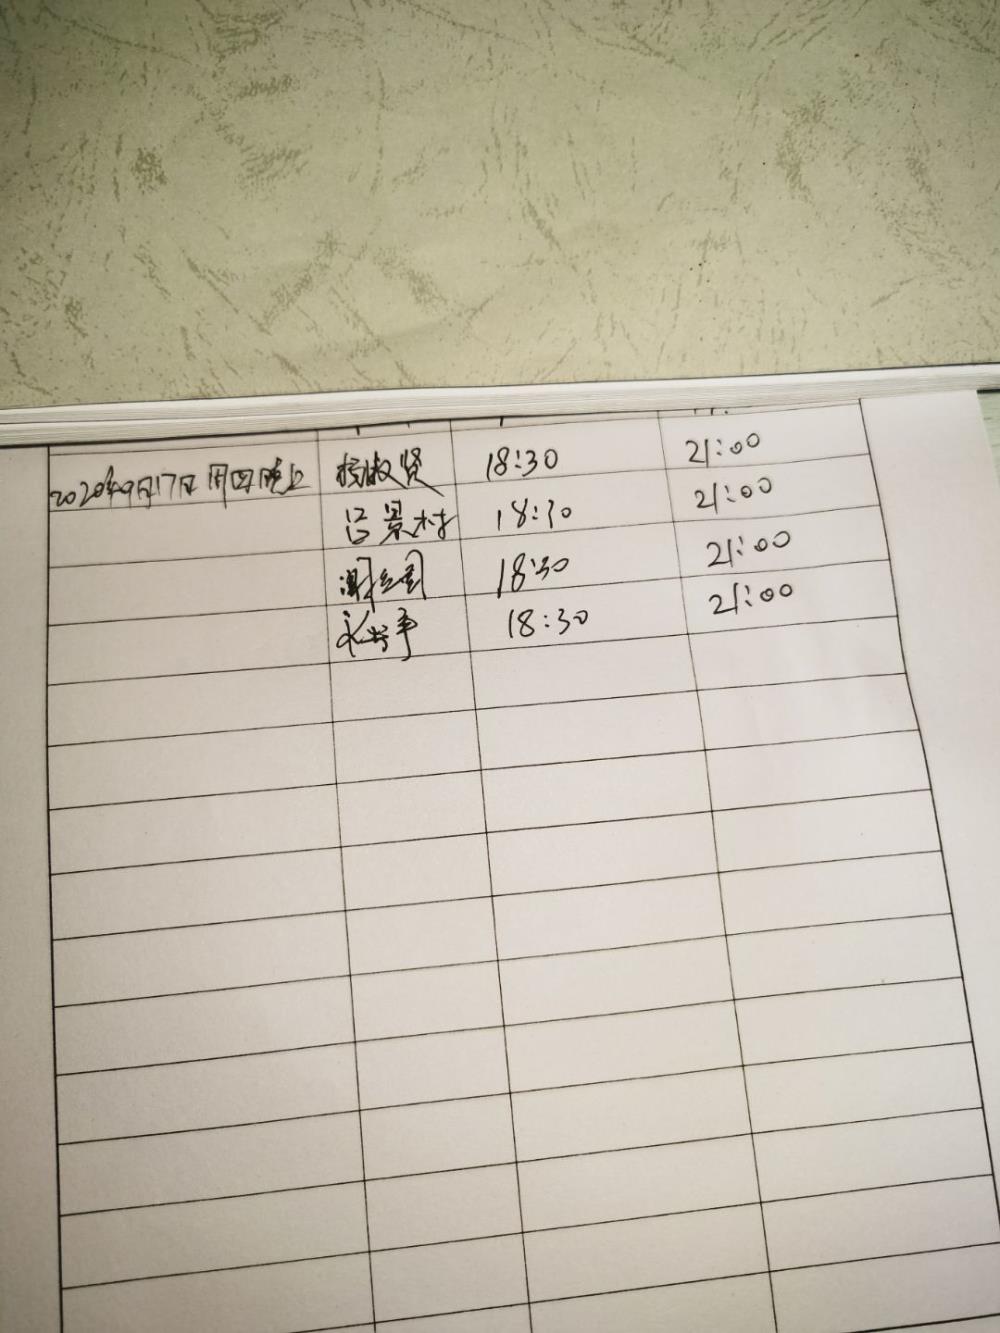 2020年9月17日 周四晚上 杨淑贤 18:30 21:00
吕景村 18:30 21:00
18:30 21:00
18:30 21:00